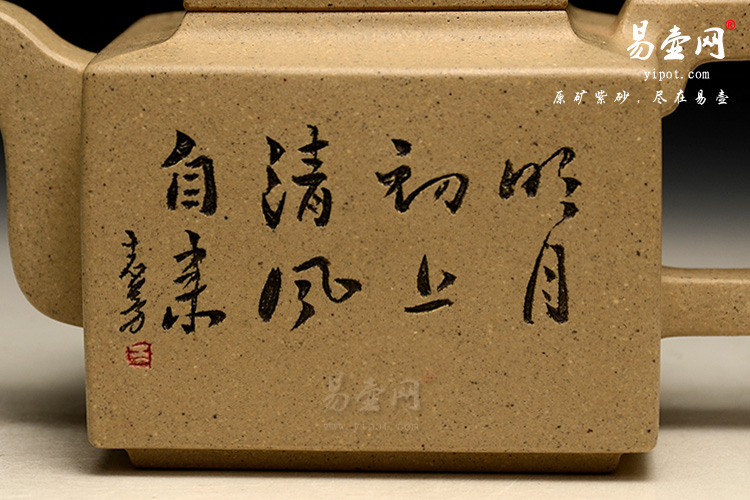 易壶网®
yipot.com
原矿紫砂，尽在易壶
明月
初上
清風
自来
易壶网
www.yipot.com